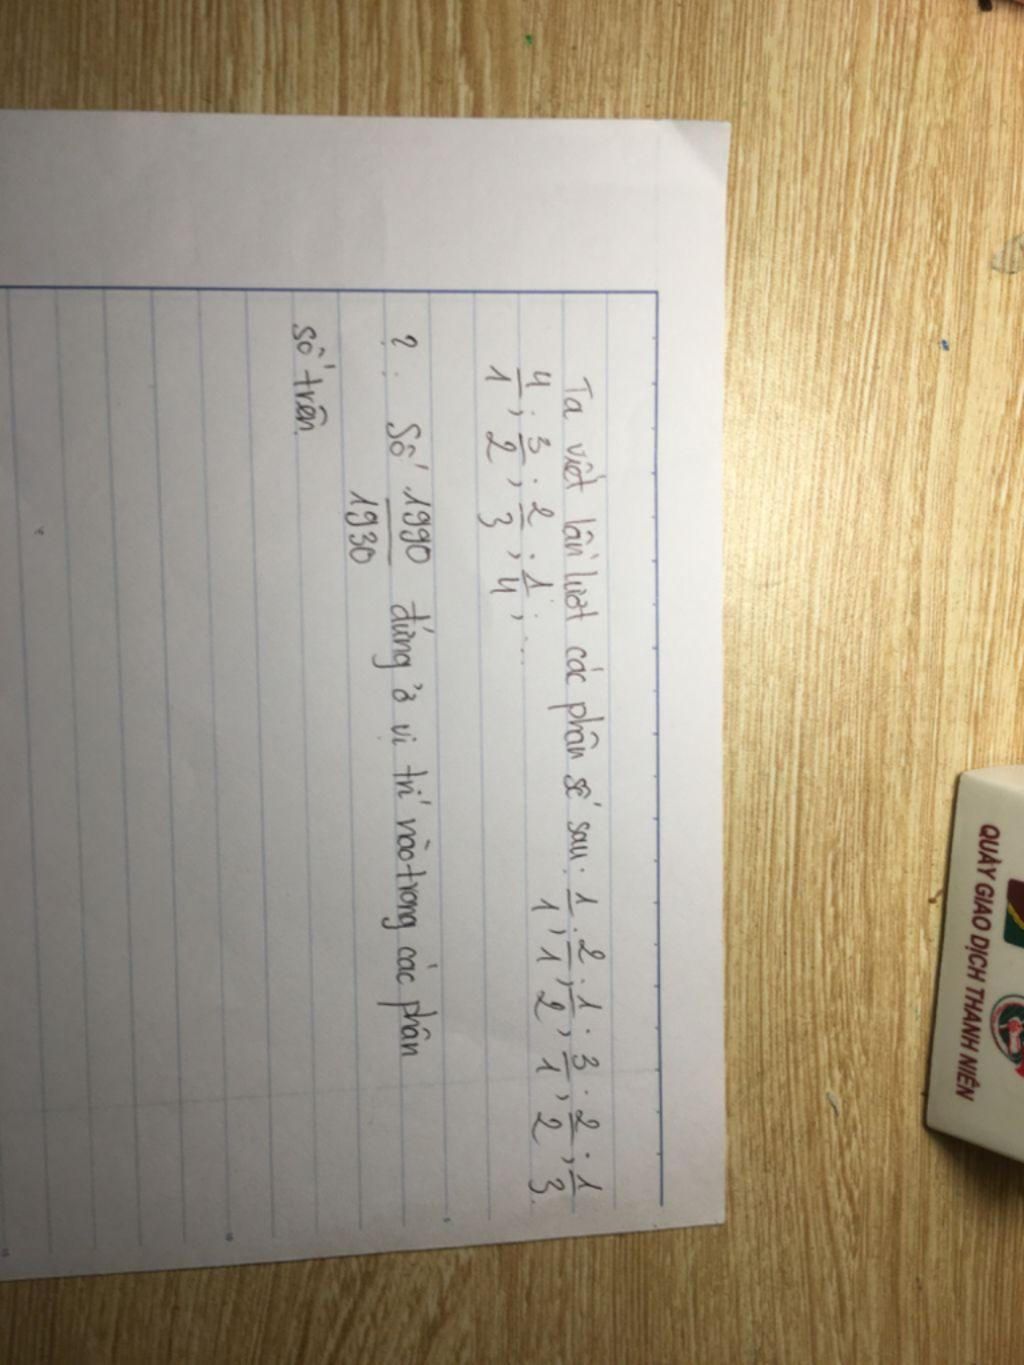 Ta viết lần lượt các phân số sau: 1/1; 2/1; 1/2; 3/1; 2/2; 1/3
4/1; 3/2; 2/3; 1/4; ...
?: Số 1990/1930 đứng ở vị trí nào trong các phân
số trên.
QUẦY GIAO DỊCH THANH NIÊN